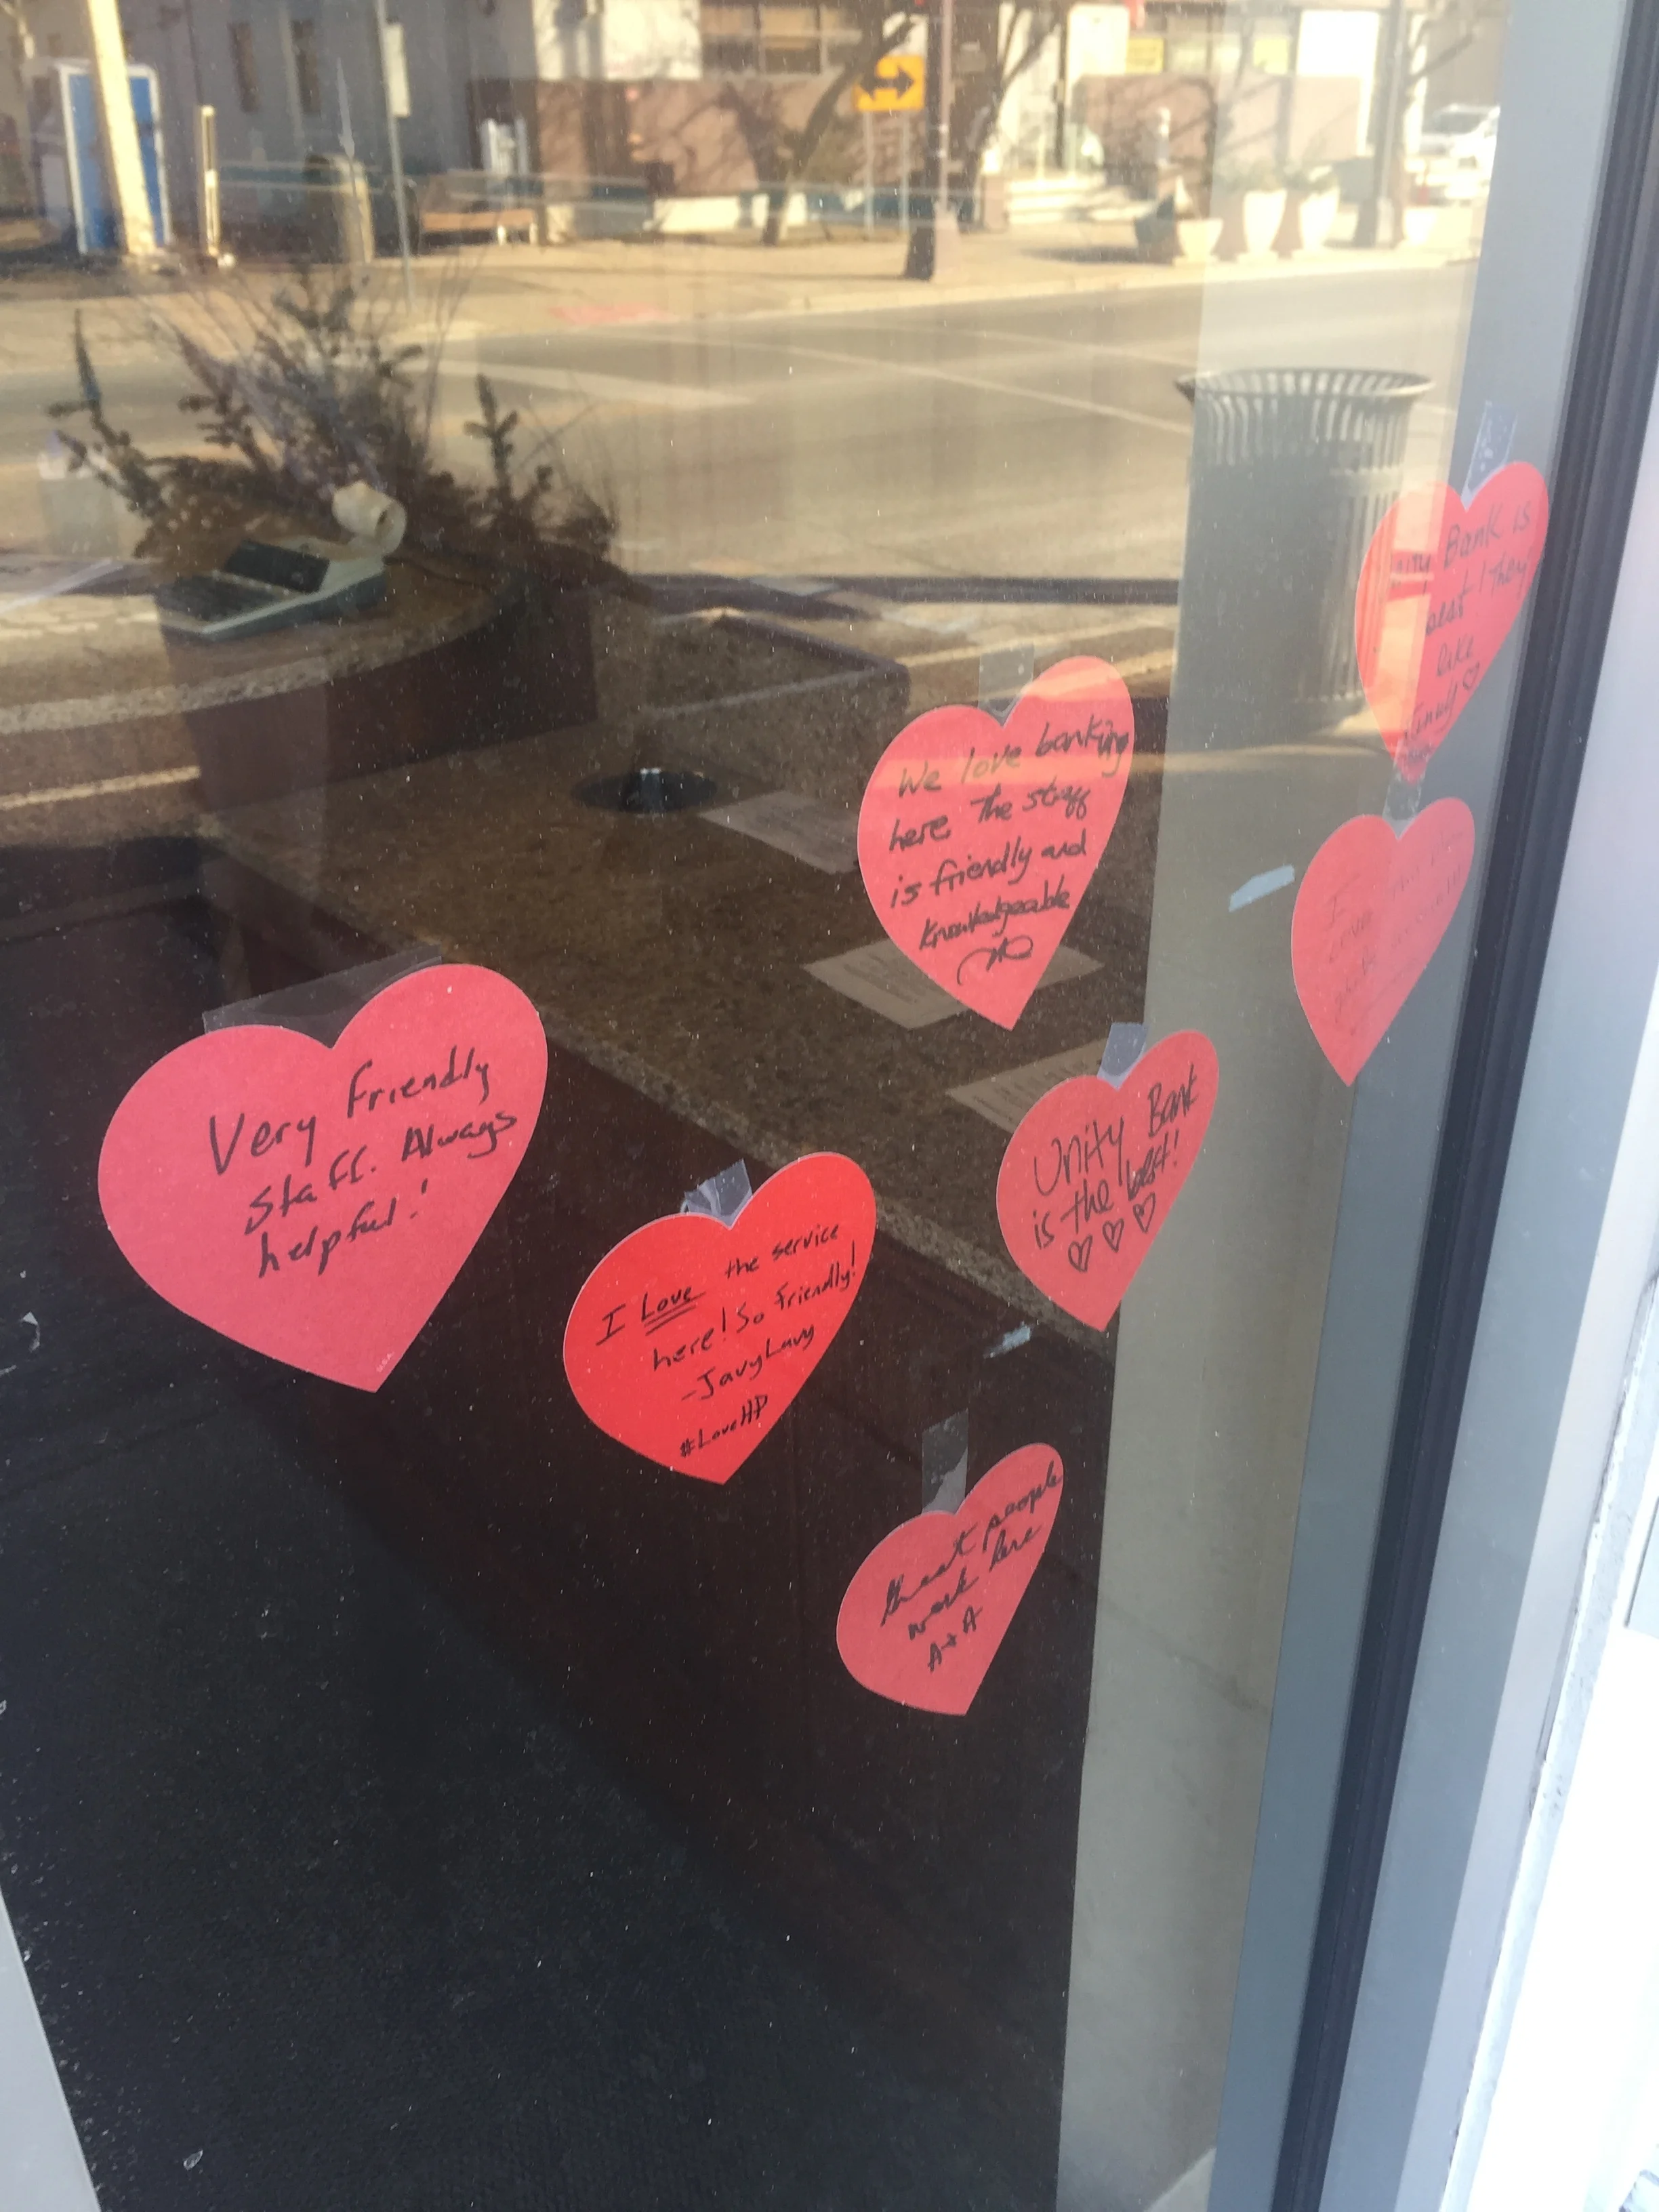 Bank is
best! They
like
family ♡
We love banking
here The staff
is friendly and
knowledgeable
I
Very friendly
staff. Always
helpful!
Unity Bank
is the best!
♡ ♡ ♡
I Love the service
here! So friendly!
-JavyLavy
#LoveHP
Great people
work here
A+A